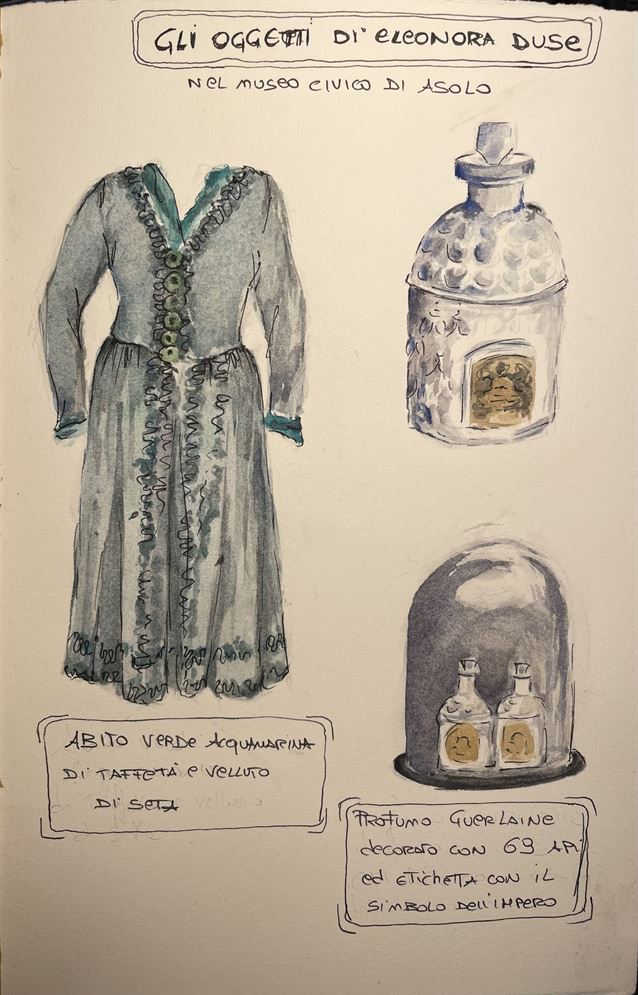 GLI OGGETTI DI' ELEONORA DUSE
NEL MUSEO CIVICO DI ASOLO
ABITO VERDE ACQUAMARINA
DI TAFFETÀ E VELLUTO
DI SETA
PROFUMO GUERLAINE
DECORATO CON 69 API
ED ETICHETTA CON IL
SIMBOLO DELL'IMPERO